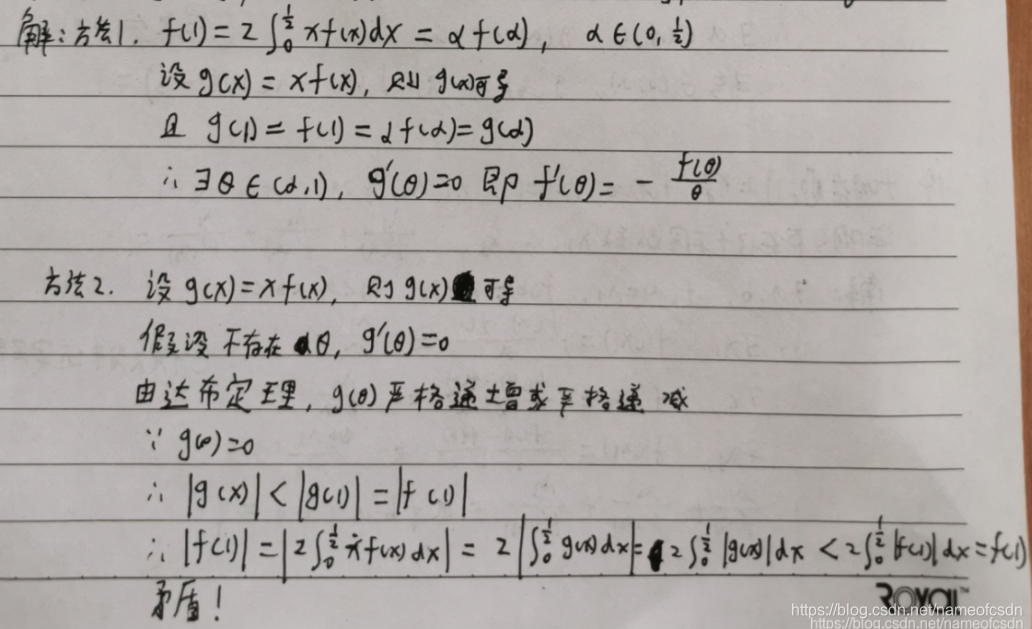 解：方法1. f(1) = 2∫₀^{1/2} xf(x)dx = αf(α), α∈(0, 1/2)
设 g(x) = xf(x), 则 g(x)可导
且 g(1) = f(1) = αf(α) = g(α)
∴ ∃θ∈(α,1), g'(θ)=0 即 f'(θ) = - f(θ)/θ
方法2. 设 g(x) = xf(x), 则 g(x) 可导
假设不存在 θ, g'(θ)=0
由达布定理, g(θ)严格递增或严格递减
∵ g(0)=0
∴ |g(x)| < |g(1)| = |f(1)|
∴ |f(1)| = |2∫₀^{1/2} xf(x)dx| = 2|∫₀^{1/2} g(x)dx| = 2∫₀^{1/2} |g(x)|dx < 2∫₀^{1/2} |f(1)|dx = f(1)
矛盾！
ROYAL™
https://blog.csdn.net/nameofcsdn
https://blog.csdn.net/nameofcsdn